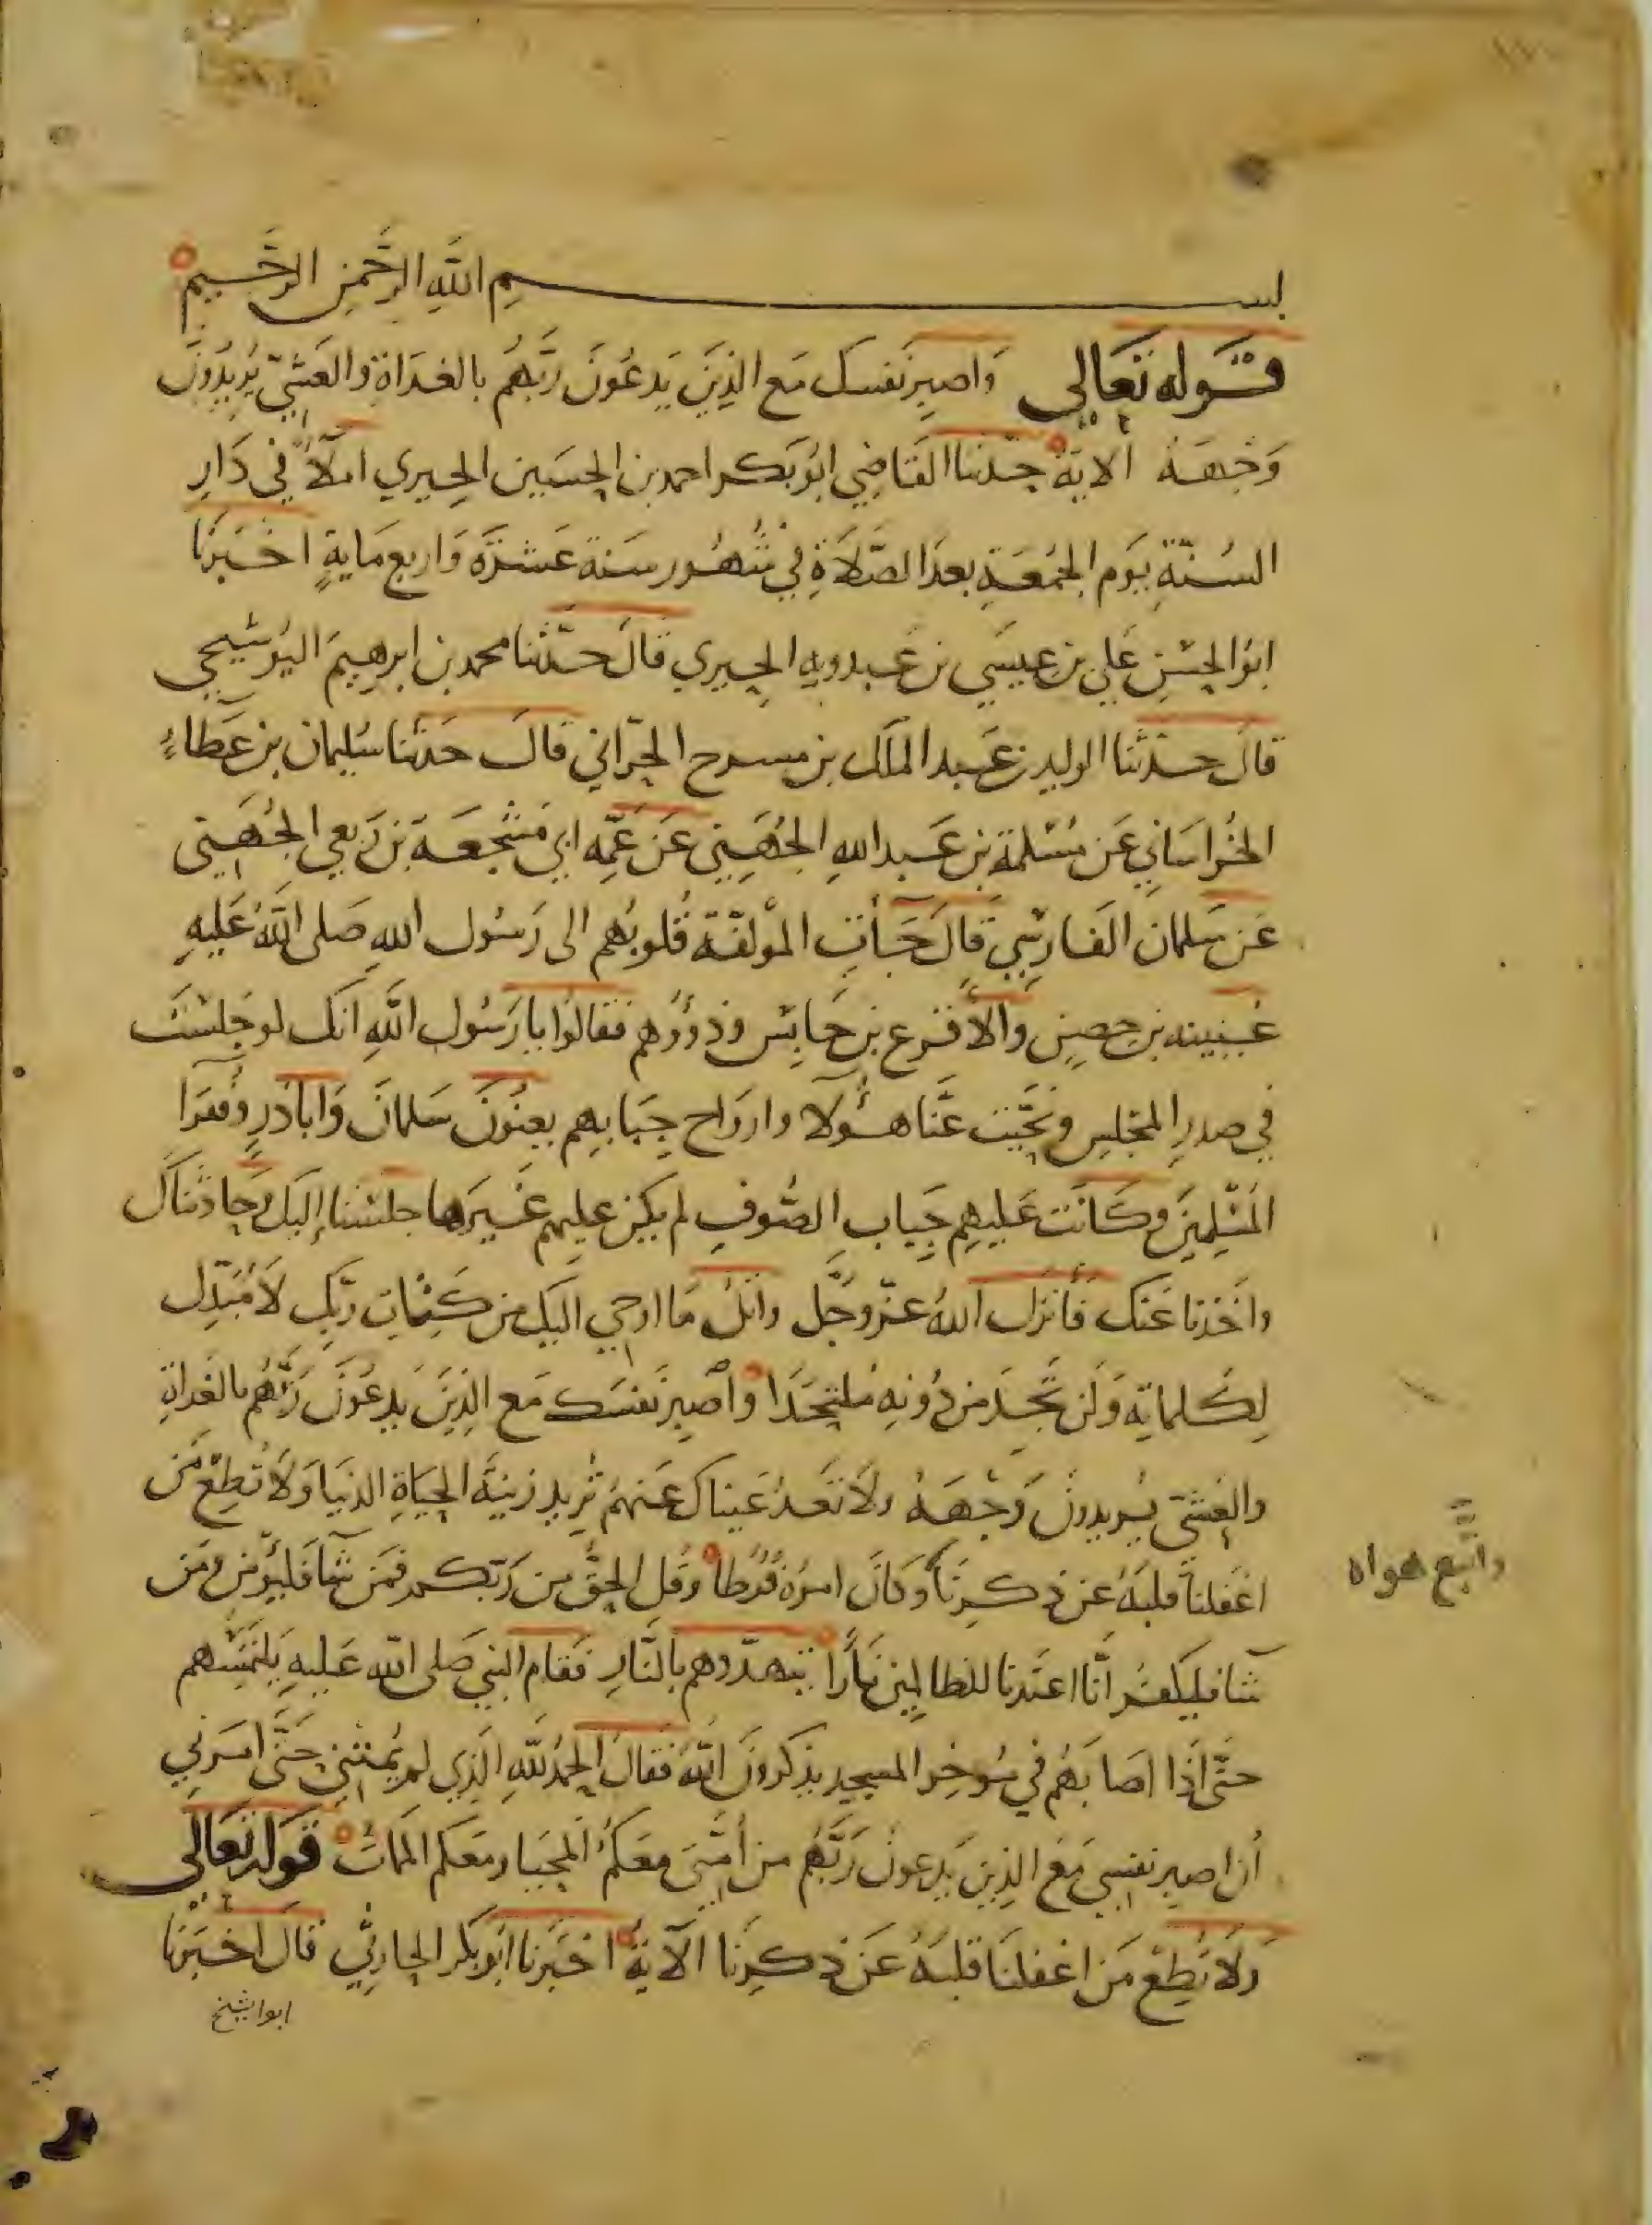 بسم الله الرحمن الرحيم
قوله تعالى واصبر نفسك مع الذين يدعون ربهم بالغداة والعشي يريدون
وجهه الاية حدثنا القاضي ابو بكر احمد بن الحسين الحيري املاء في دار
السنة يوم الجمعة بعد الصلاة في شهور سنة عشرة واربع ماية اخبرنا
ابو الحسن علي بن عيسى بن عبدويه الحيري قال حدثنا محمد بن ابرهيم البوشيجي
قال حدثنا الوليد بن عبد الملك بن مسرح الحراني قال حدثنا سليمان بن عطاء
الخراساني عن مسلمة بن عبد الله الجهيني عن عمه ابي مشجعة بن ربعي الجهيني
عن سلمان الفارسي قال جآت المولفة قلوبهم الى رسول الله صلى الله عليه
عيينه بن حصن والاقرع بن حابس وذووهم فقالوا يا رسول الله انك لو جلست
في صدر المجلس ونحيت عنا هؤلا وارواح جبابهم يعنون سلمان وابا ذر وفقرا
المسلمين وكانت عليهم جباب الصوف لم يكن عليهم غيرها جلسنا إليك وحادثناك
واخذنا عنك فأنزل الله عز وجل واتل ما اوحي اليك من كلمات ربك لا مبدل
لكلماته ولن تجد من دونه ملتحدا واصبر نفسك مع الذين يدعون ربهم بالغداة
والعشي يريدون وجهه ولا تعد عيناك عنهم تريد زينة الحياة الدنيا ولا تطع من
اغفلنا قلبه عن ذكرنا وكان امره فرطا وقل الحق من ربكم فمن شآ فليؤمن ومن
شآ فليكفر انا اعتدنا للظالمين نارا يتهددهم بالنار فقام النبي صلى الله عليه يلتمسهم
حتى اذا اصابهم في موخر المسجد يذكرون الله فقال الحمد لله الذي لم يمتني حتى امرني
أن اصبر نفسي مع الذين يدعون ربهم من أمتي معكم المحيا ومعكم الممات قوله تعالى
ولا تطع من اغفلنا قلبه عن ذكرنا الآية اخبرنا ابو بكر الحارثي قال اخبرنا
ابو الشيخ
واتبع هواه